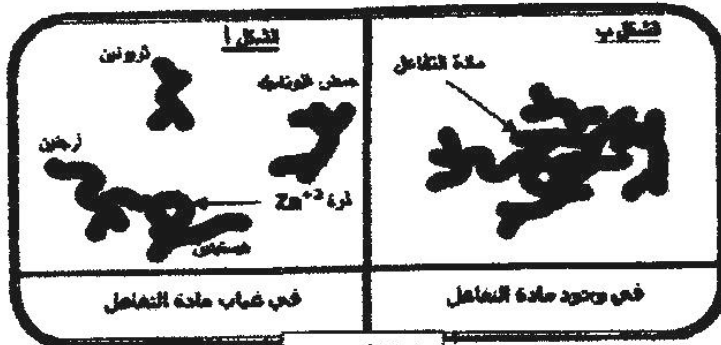 الشكل أ
تريونين
حمض غلوتاميك
أرجنين
ذرة Zn⁺²
هيستيدين
في غياب مادة التفاعل
الشكل ب
مادة التفاعل
في وجود مادة التفاعل